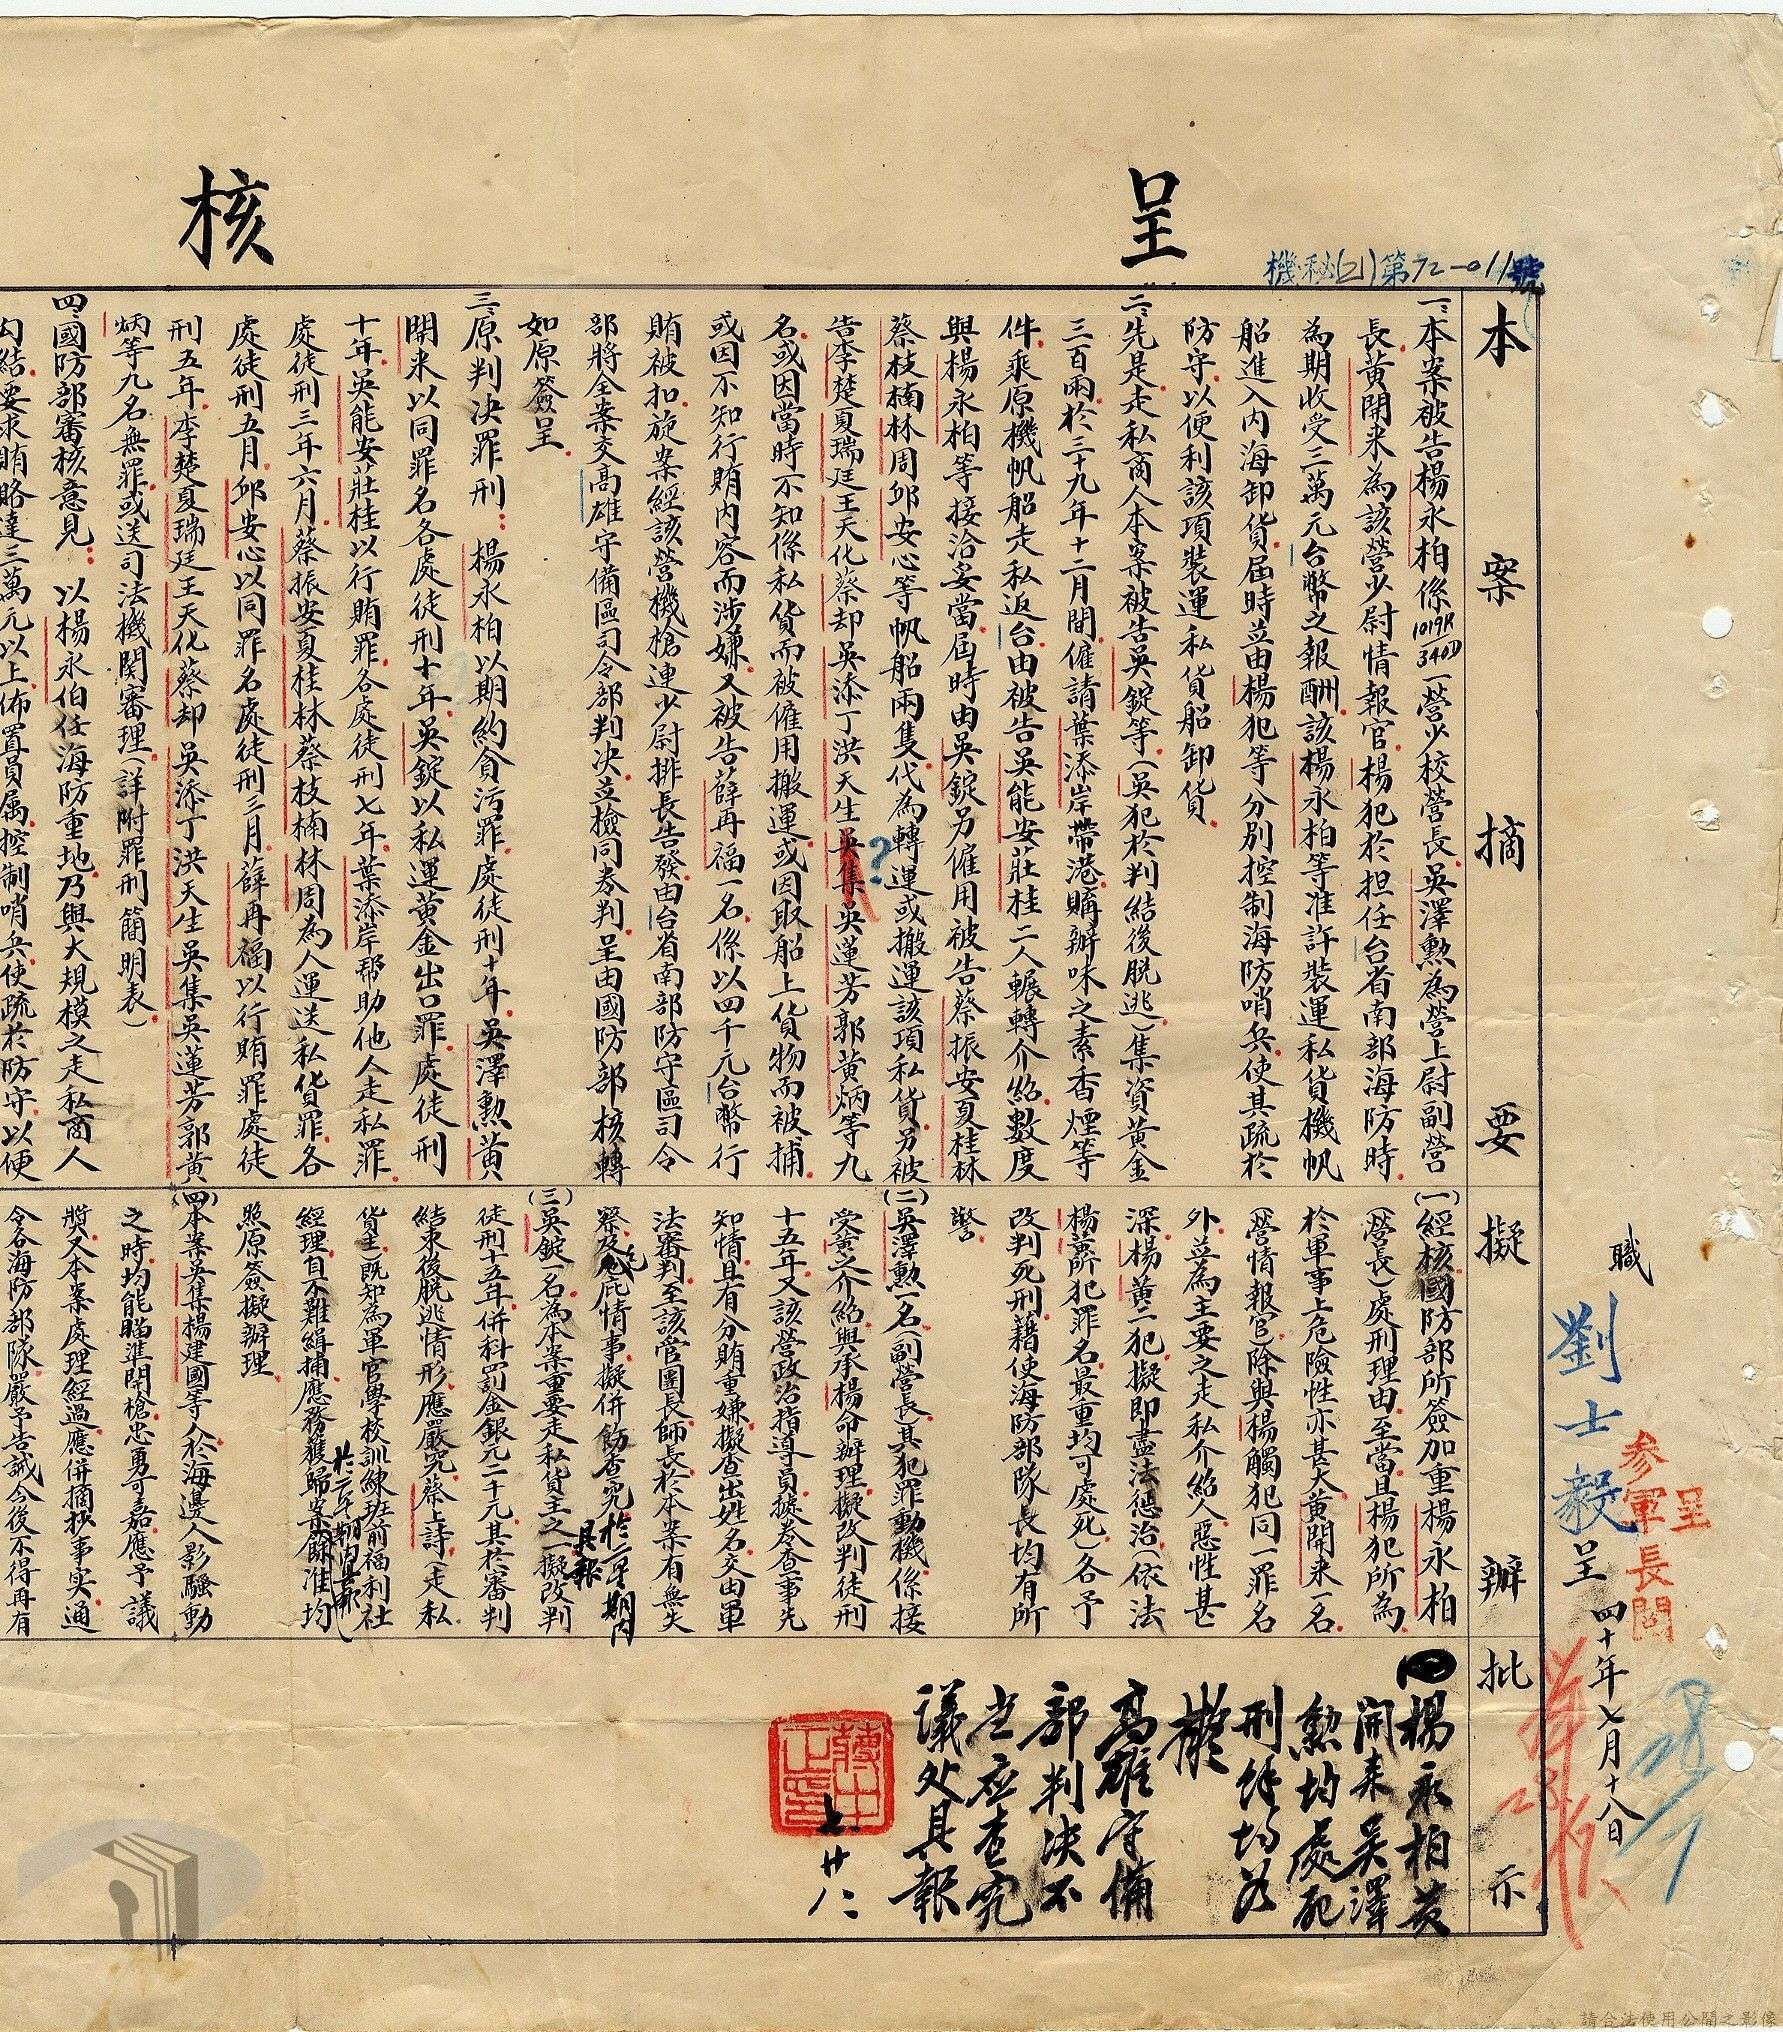 呈核
機秘(乙)第72-011號
本案摘要
一、本案被告楊永柏係1019R
340D一營少校營長吳澤勲為營上尉副營
長黃開来為該營少尉情報官楊犯於担任台省南部海防時
為期收受三萬元台幣之報酬該楊永柏等准許裝運私貨機帆
船進入内海卸貨屆時並由楊犯等分别控制海防哨兵使其疏於
防守以便利該項裝運私貨船卸貨
二、先是走私商人本案被告吳錠等(吳犯於判結後脱逃)集資黃金
三百兩於三十九年十二月間僱請葉添岸帶港購辦味之素香煙等
件乘原機帆船走私返台由被告吳能安莊桂二人輾轉介紹數度
與楊永柏等接洽妥當屆時由吳錠另僱用被告蔡振安夏桂林
蔡枝楠林周邱安心等帆船兩隻代為轉運或搬運該項私貨另被
告李楚夏瑞廷王天化蔡却吳添丁洪天生吳集吳蓮芳郭黃炳等九
?
名或因當時不知係私貨而被僱用搬運或因取船上貨物而被捕
或因不知行賄内容而涉嫌又被告薛再福一名係以四千元台幣行
賄被扣旋案經該營機槍連少尉排長告發由台省南部防守區司令
部將全案交高雄守備區司令部判决並檢同卷判呈由國防部核轉
如原簽呈
三、原判决罪刑:楊永柏以期約貪污罪處徒刑十年吳澤勲黃
開来以同罪名各處徒刑十年吳錠以私運黃金出口罪處徒刑
十年吳能安莊桂以行賄罪各處徒刑七年葉添岸帮助他人走私罪
處徒刑三年六月蔡振安夏桂林蔡枝楠林周為人運送私貨罪各
處徒刑五月邱安心以同罪名處徒刑三月薛再福以行賄罪處徒
刑五年李楚夏瑞廷王天化蔡却吳添丁洪天生吳集吳蓮芳郭黃
炳等九名無罪或送司法機関審理(詳附罪刑簡明表)
四、國防部審核意見:以楊永伯任海防重地乃與大規模之走私商人
勾結要求賄賂達三萬元以上佈置員属控制哨兵使疏於防守以便
擬辦
(一)經核國防部所簽加重楊永柏
(營長)處刑理由至當且楊犯所為
於軍事上危險性亦甚大黃開来一名
(營情報官)除與楊觸犯同一罪名
外並為主要之走私介紹人惡性甚
深楊黃二犯擬即盡法懲治(依法
楊黃所犯罪名最重均可處死)各予
改判死刑藉使海防部隊長均有所
警
(二)吳澤勲一名(副營長)其犯罪動機係接
受黃之介紹與承楊命辦理擬改判徒刑
十五年又該營政治指導員據卷查事先
知情且有分賄重嫌擬查出姓名交由軍
法審判至該管團長師長於本案有無失
察及包庇情事擬併飭查究於一星期内
具報
(三)吳錠一名為本案重要走私貨主之一擬改判
徒刑十五年併科罰金銀元二千元其於審判
結束後脱逃情形應嚴究蔡上詩(走私
貨主既知為軍官學校訓練班前福利社
經理自不難緝捕應務獲歸案餘准均
照原簽擬辦理
(四)本案吳集楊建國等人於海邊人影騷動
之時均能瞄準開槍忠勇可嘉應予議
奬又本案處理經過應併摘抄事实通
令各海防部隊嚴予告誡今後不得再有
批示
楊永柏黃
開来吳澤
勲均處死
刑餘均如
擬
高雄守備
部判决不
當应查究
議处具報
七廿八
職劉士毅呈四十年七月十八日
呈
參軍長閱